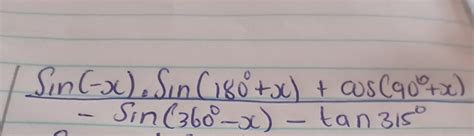 Sin(-x).Sin(180°+x) + cos(90°+x)
- Sin(360°-x) - tan315°